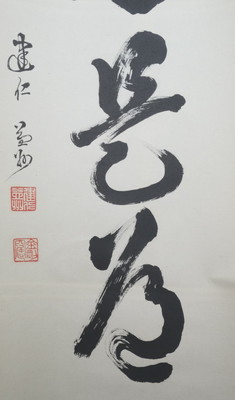 是道
建仁 益州